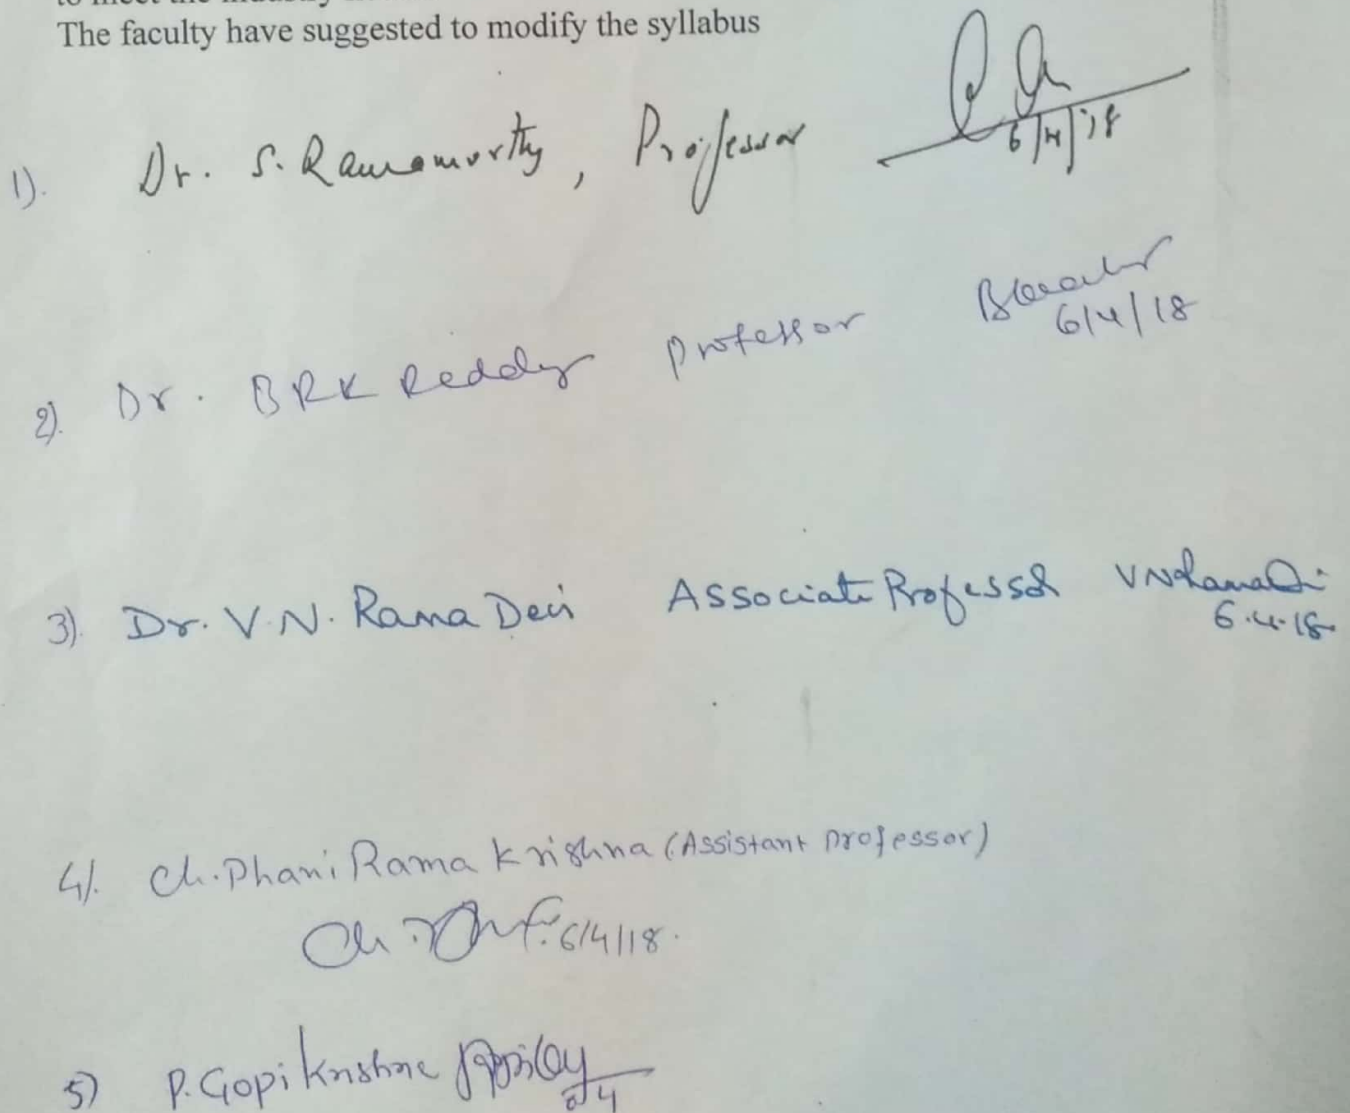 The faculty have suggested to modify the syllabus
1). Dr. S. Ramamurthy, Professor
6/4/18
2). Dr. BRK Reddy Professor
6/4/18
3). Dr. V.N. Rama Devi Associate Professor VNRamaDevi
6.4.18
4). Ch. Phani Rama Krishna (Assistant Professor)
Ch. 6/4/18.
5) P. Gopi Krishna